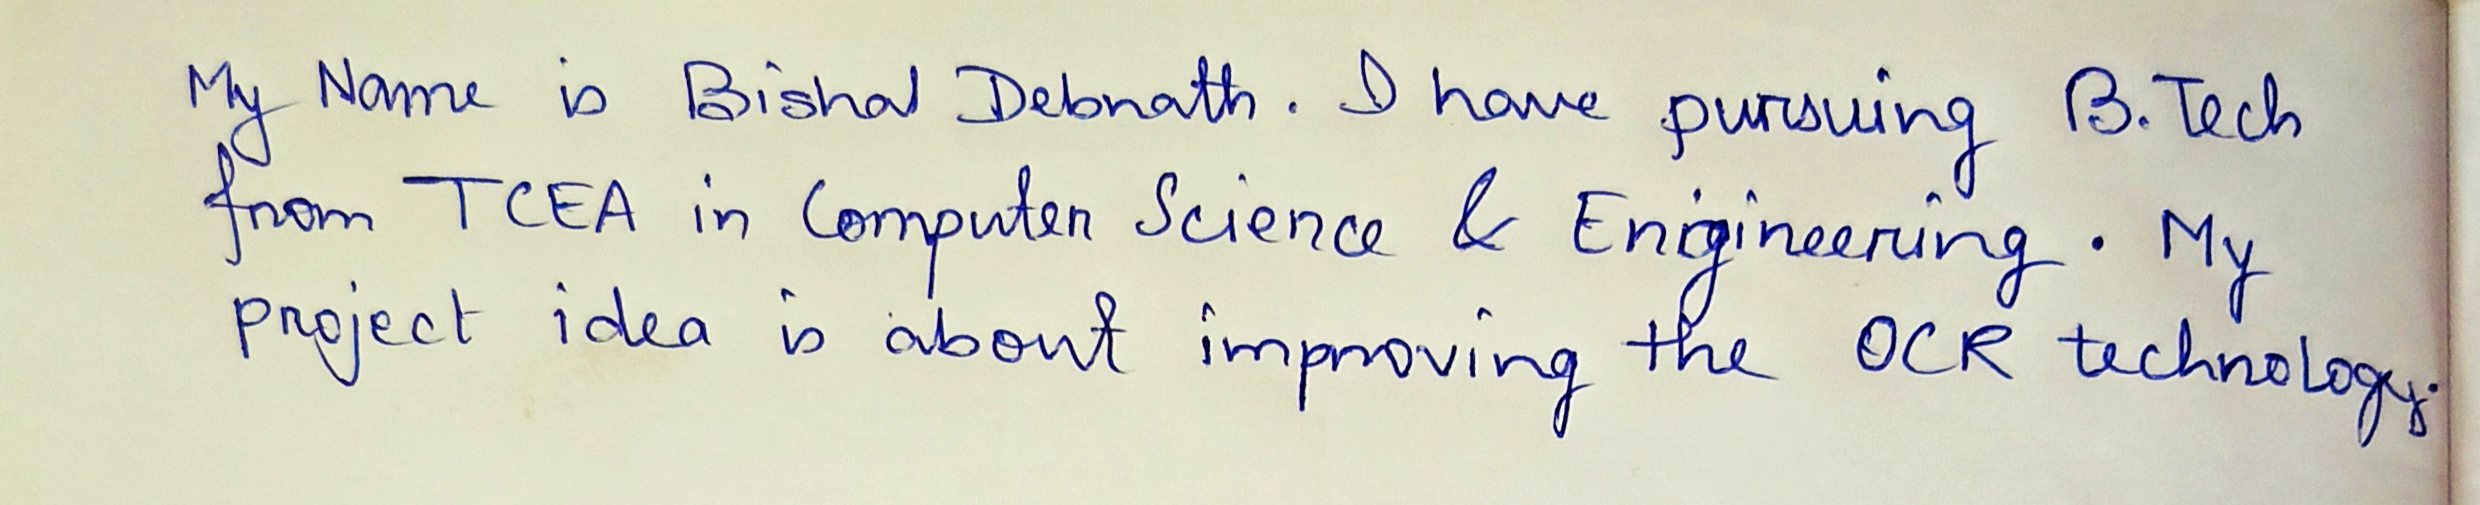 My Name is Bishal Debnath. I have pursuing B.Tech
from TCEA in Computer Science & Enigineering. My
project idea is about improving the OCR technology.